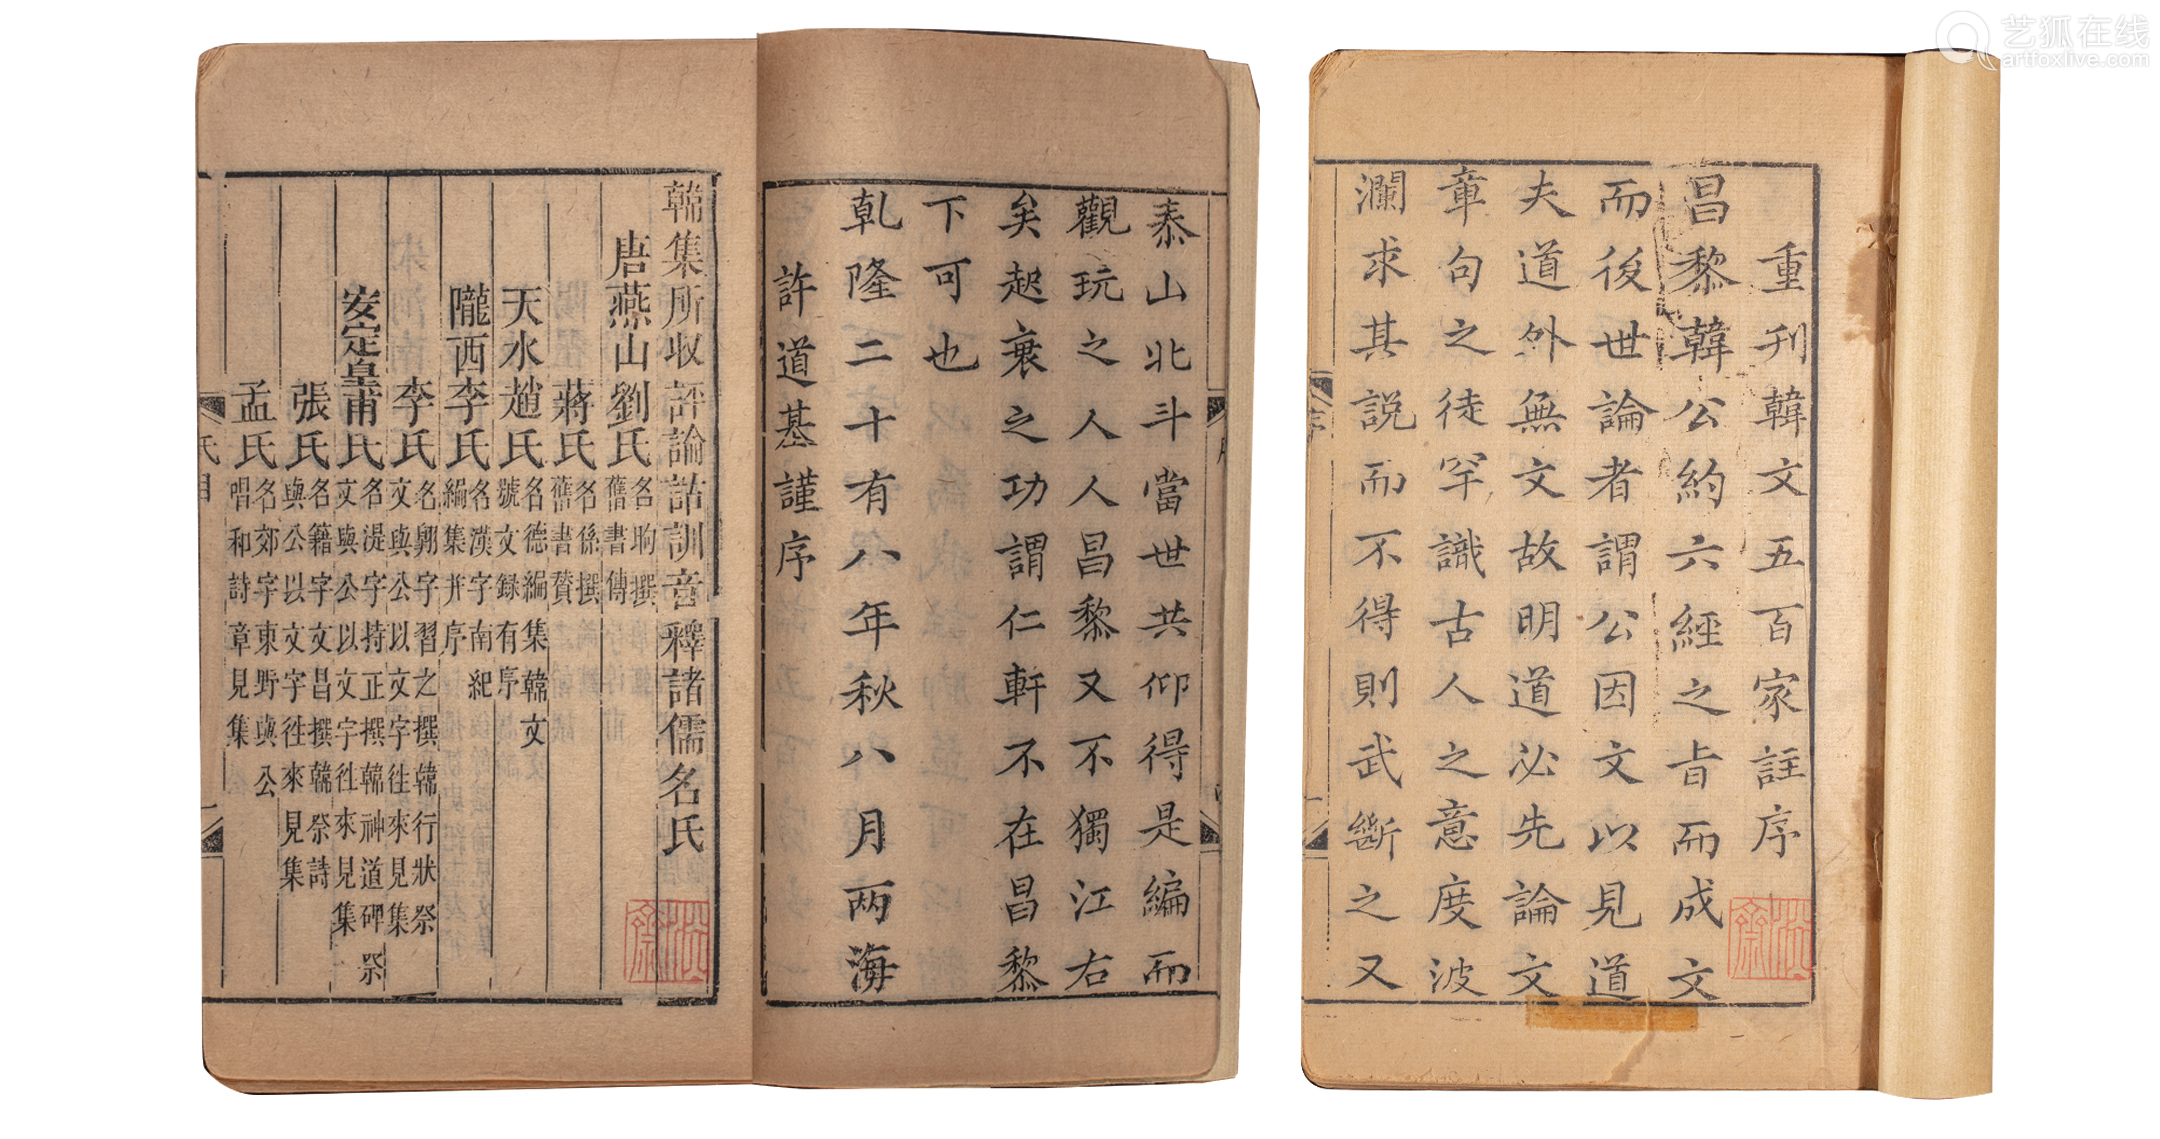 艺狐在线
artfoxlive.com
重刊韓文五百家註序
昌黎韓公約六經之旨而成文
而後世論者謂公因文以見道
夫道外無文故明道必先論文
章句之徒罕識古人之意度波
瀾求其説而不得則武斷之又
序
泰山北斗當世共仰得是編而
觀玩之人人昌黎又不獨江右
矣起衰之功謂仁軒不在昌黎
下可也
乹隆二十有八年秋八月两海
許道基謹序
韓集所收評論詁訓音釋諸儒名氏
唐燕山劉氏名昫撰舊書傳
蔣氏名係撰舊書贊
天水趙氏名德編集韓文號文録有序
隴西李氏名漢字南紀編集并序
李氏名翺字習之撰韓行狀祭文與公以文字徃來見集
安定皇甫氏名湜字持正撰韓神道碑祭文與公以文字徃來見集
張氏名籍字文昌撰韓祭詩與公以文字徃來見集
孟氏名郊字東野與公唱和詩章見集